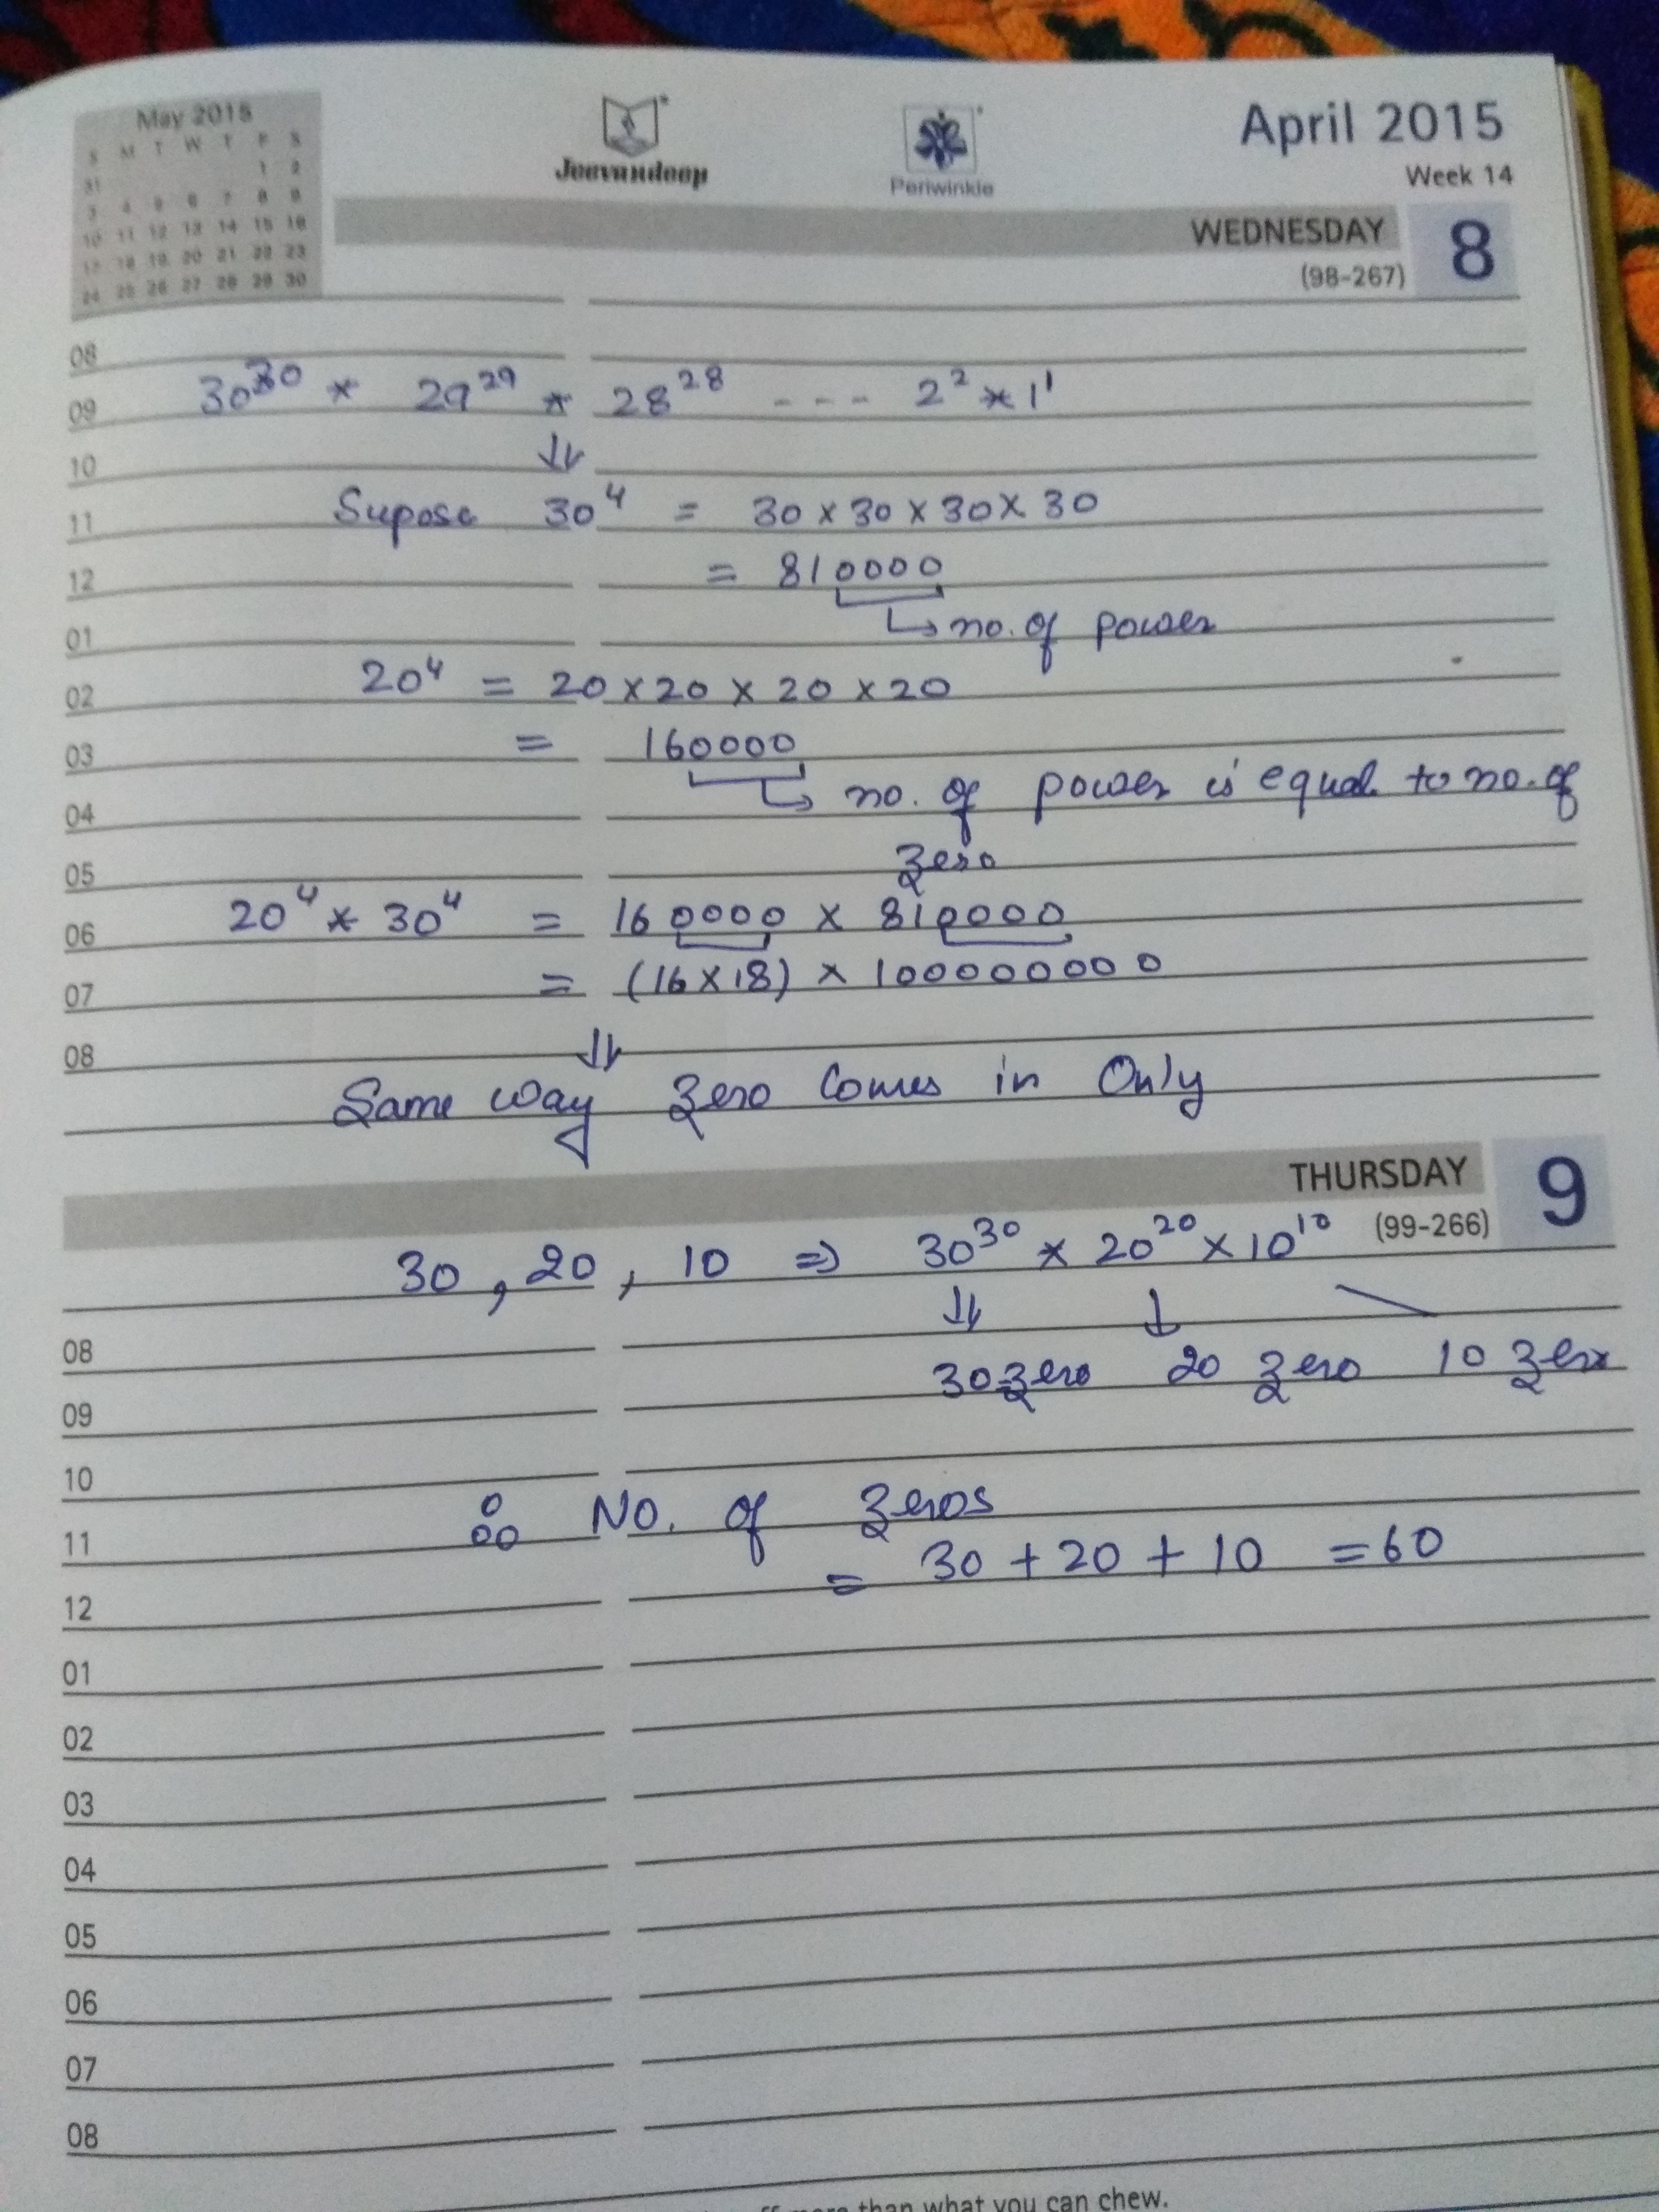 May 2015
S M T W T F S
31 1 2
3 4 5 6 7 8 9
10 11 12 13 14 15 16
17 18 19 20 21 22 23
24 25 26 27 28 29 30
Jeevandeep
Periwinkle
April 2015
Week 14
WEDNESDAY 8
(98-267)
08
09 30³⁰ * 29²⁹ * 28²⁸ - - - 2² * 1¹
10 ⇓
11 Supose 30⁴ = 30 × 30 × 30 × 30
12 = 810000
01 ↳ no. of power
02 20⁴ = 20 × 20 × 20 × 20
03 = 160000
04 ↳ no. of power is equal to no. of
05 zero
06 20⁴ * 30⁴ = 160000 × 810000
07 = (16 × 18) × 100000000
08 ⇓
Same way zero comes in Only
THURSDAY 9
(99-266)
30, 20, 10 ⇒ 30³⁰ * 20²⁰ × 10¹⁰
08 ⇓ ↓
09 30 zero 20 zero 10 zero
10
11 ∴ No. of zeros
12 = 30 + 20 + 10 = 60
01
02
03
04
05
06
07
08
more than what you can chew.